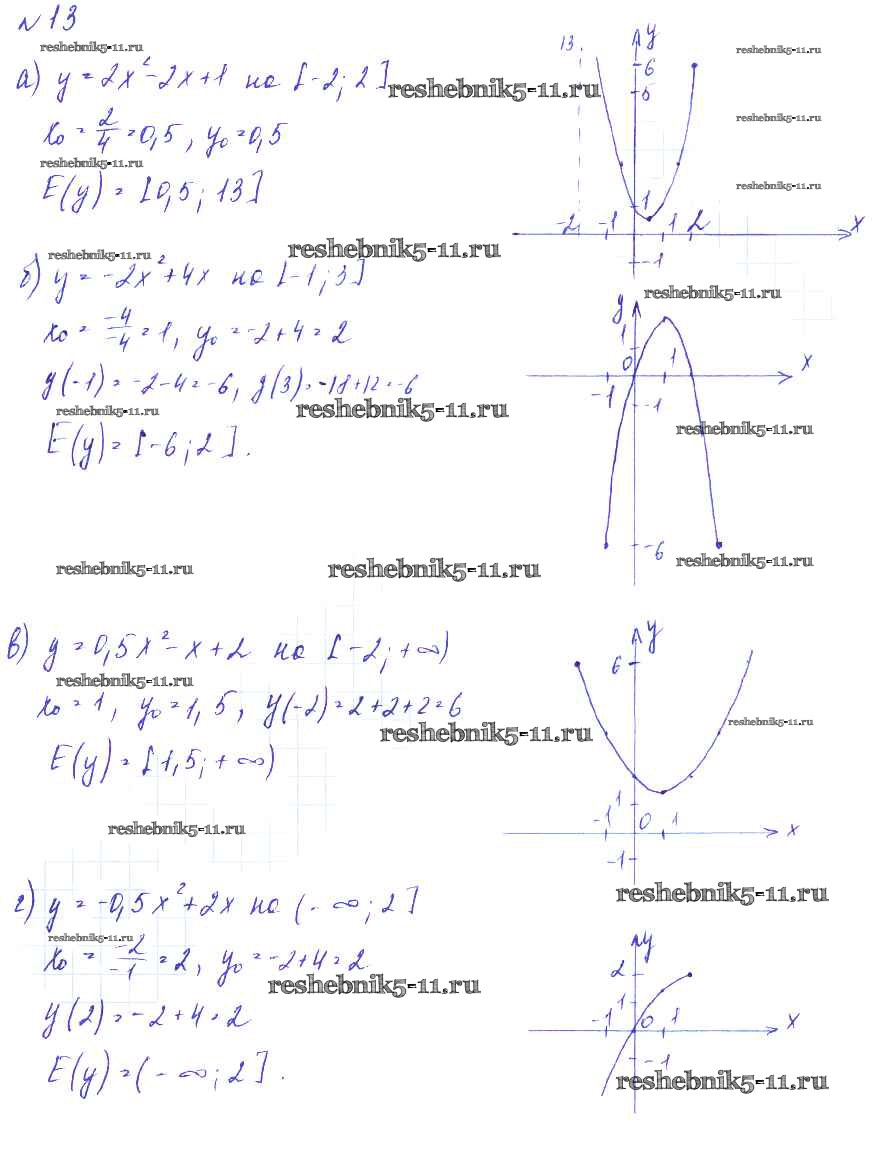 №13
reshebnik5-11.ru
а) y = 2x² - 2x + 1 на [-2; 2]
reshebnik5-11.ru
x₀ = 2/4 = 0,5, y₀ = 0,5
reshebnik5-11.ru
E(y) = [0,5; 13]
13.
y
reshebnik5-11.ru
6
5
reshebnik5-11.ru
reshebnik5-11.ru
1
-2 -1 1 2 x
-1
reshebnik5-11.ru
reshebnik5-11.ru
б) y = -2x² + 4x на [-1; 3]
x₀ = -4/-4 = 1, y₀ = -2+4 = 2
y(-1) = -2-4 = -6, y(3) = -18+12 = -6
reshebnik5-11.ru
reshebnik5-11.ru
E(y) = [-6; 2].
reshebnik5-11.ru
y
1
0 1 x
-1
-1
reshebnik5-11.ru
-6
reshebnik5-11.ru
reshebnik5-11.ru
reshebnik5-11.ru
в) y = 0,5x² - x + 2 на [-2; +∞)
reshebnik5-11.ru
x₀ = 1, y₀ = 1,5, y(-2) = 2+2+2 = 6
reshebnik5-11.ru
E(y) = [1,5; +∞)
reshebnik5-11.ru
y
6
reshebnik5-11.ru
1
-1 0 1 x
-1
reshebnik5-11.ru
г) y = -0,5x² + 2x на (-∞; 2]
reshebnik5-11.ru
x₀ = -2/-1 = 2, y₀ = -2+4 = 2
reshebnik5-11.ru
y(2) = -2+4 = 2
E(y) = (-∞; 2].
y
2
1
-1 0 1 x
-1
reshebnik5-11.ru